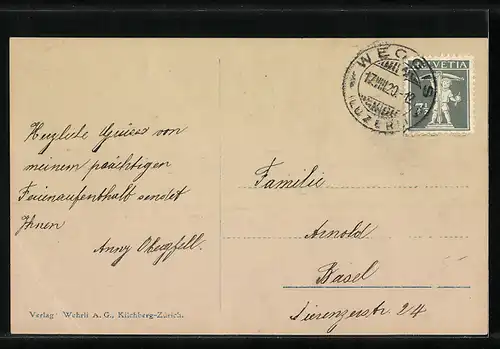 Herzliche Grüsse von
meinem prächtigen
Ferienaufenthalt sendet
Ihnen
Anny Obegfell.
Verlag Wehrli A. G., Kilchberg-Zürich.
WEGGIS
17.VIII.20.-12
(LUZERN)
HELVETIA
7½
Familie
Arnold
Basel
Sierenzerstr. 24